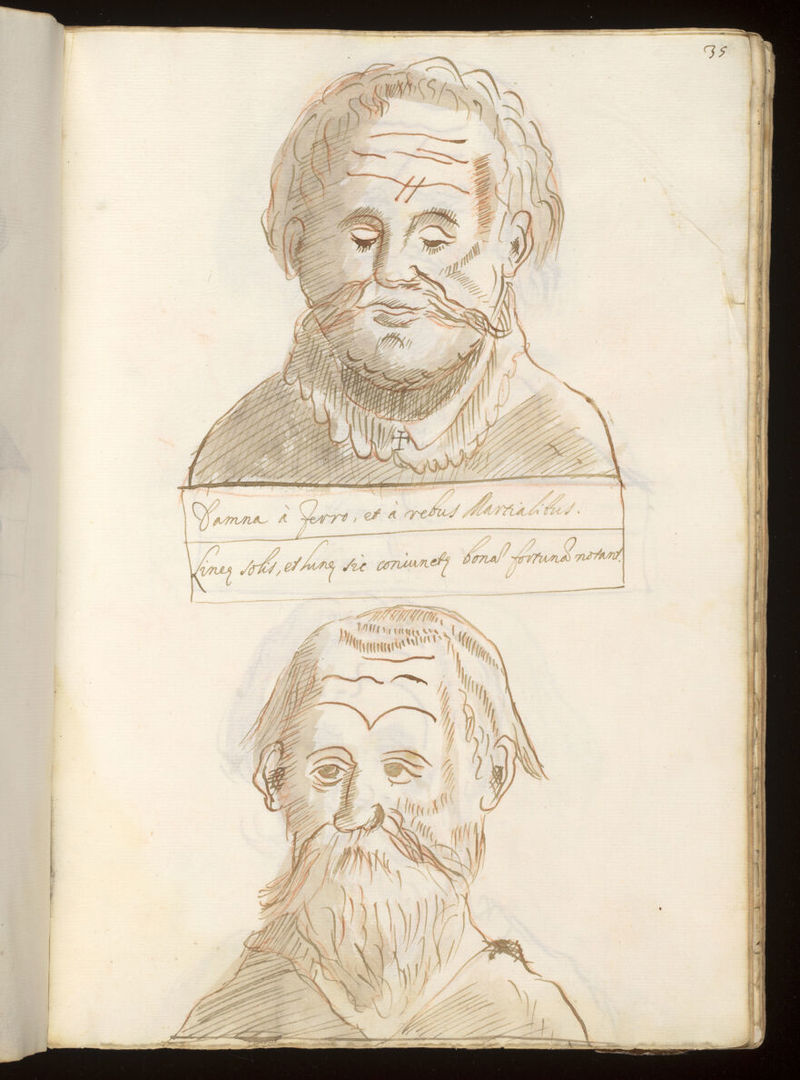 35
Damna à Ferro, et à rebus Martialibus.
Lineę solis, et lunę sic coniunctę bonā fortunā notant.